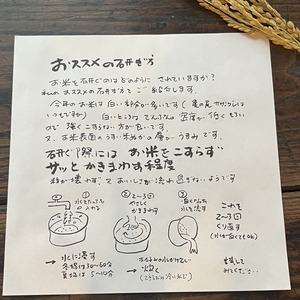 おススメの研ぎ方
お米を研ぐのはどのように されていますか?
私のおススメの研ぎ方を ご紹介します。
今年のお米は白い部分が多いです(
いつもですが) 白いところは でんぷんの 密度が
ので 強くこすらない方が良いです。
又、お米表面のうす い 層がうまみです。
研ぐ際には お米をこすらず
サッとかきまわす程度
粒が壊わず 又 おいしさが流れ過ぎないようです
①
水をたっぷり
入れる
②
2〜3回
やさしく
かきまわす
③
水を流す
これを
2〜3回
くり返す
→ 水に浸す
冬場は30〜60分
夏場は5〜10分
→ 炊く
試して
みてください…